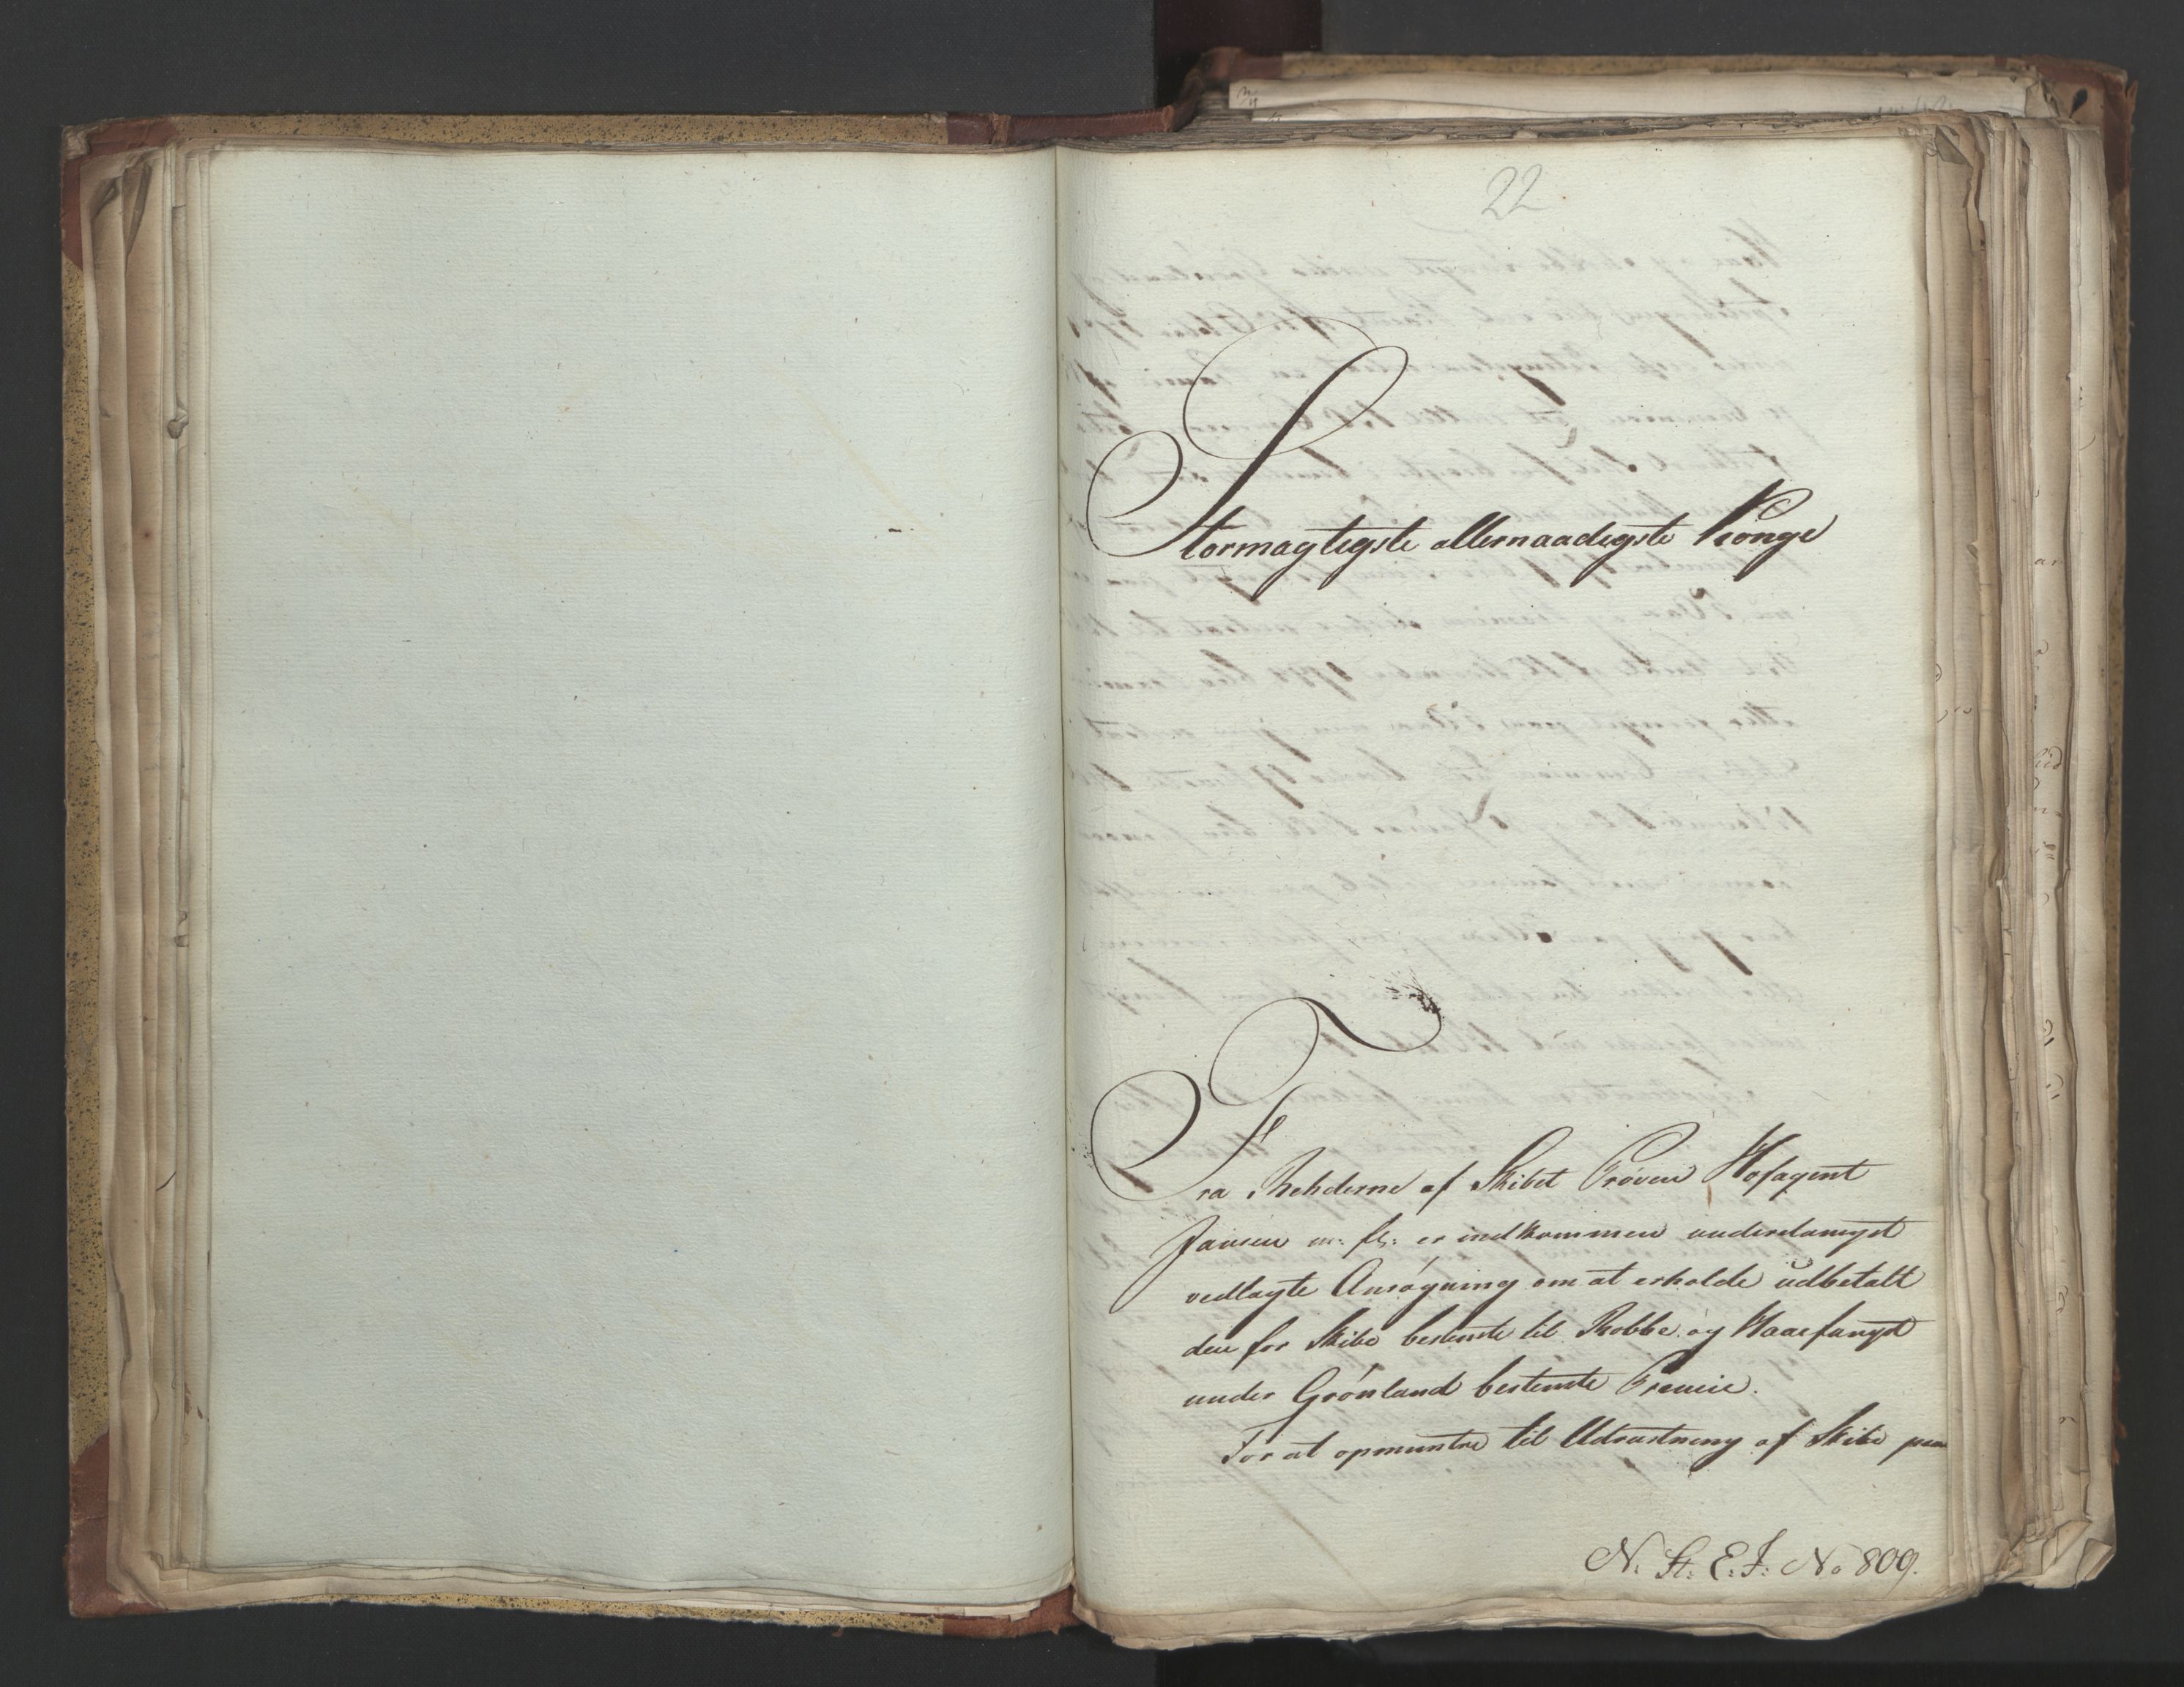 22
Stormagtigste allernaadigste Konge
Fra Rehderne af Skibet Prøven Hofagent
Jansen m: fl: er indkommen underdanigst
vedlagte Ansøgning om at erholde udbetalt
den for Skibe bestemte til Robbe og Haaefangst
under Grønland bestemte Præmie.
For at opmuntre til Udrustning af Skibe paa
N. St: E. J: No 809.